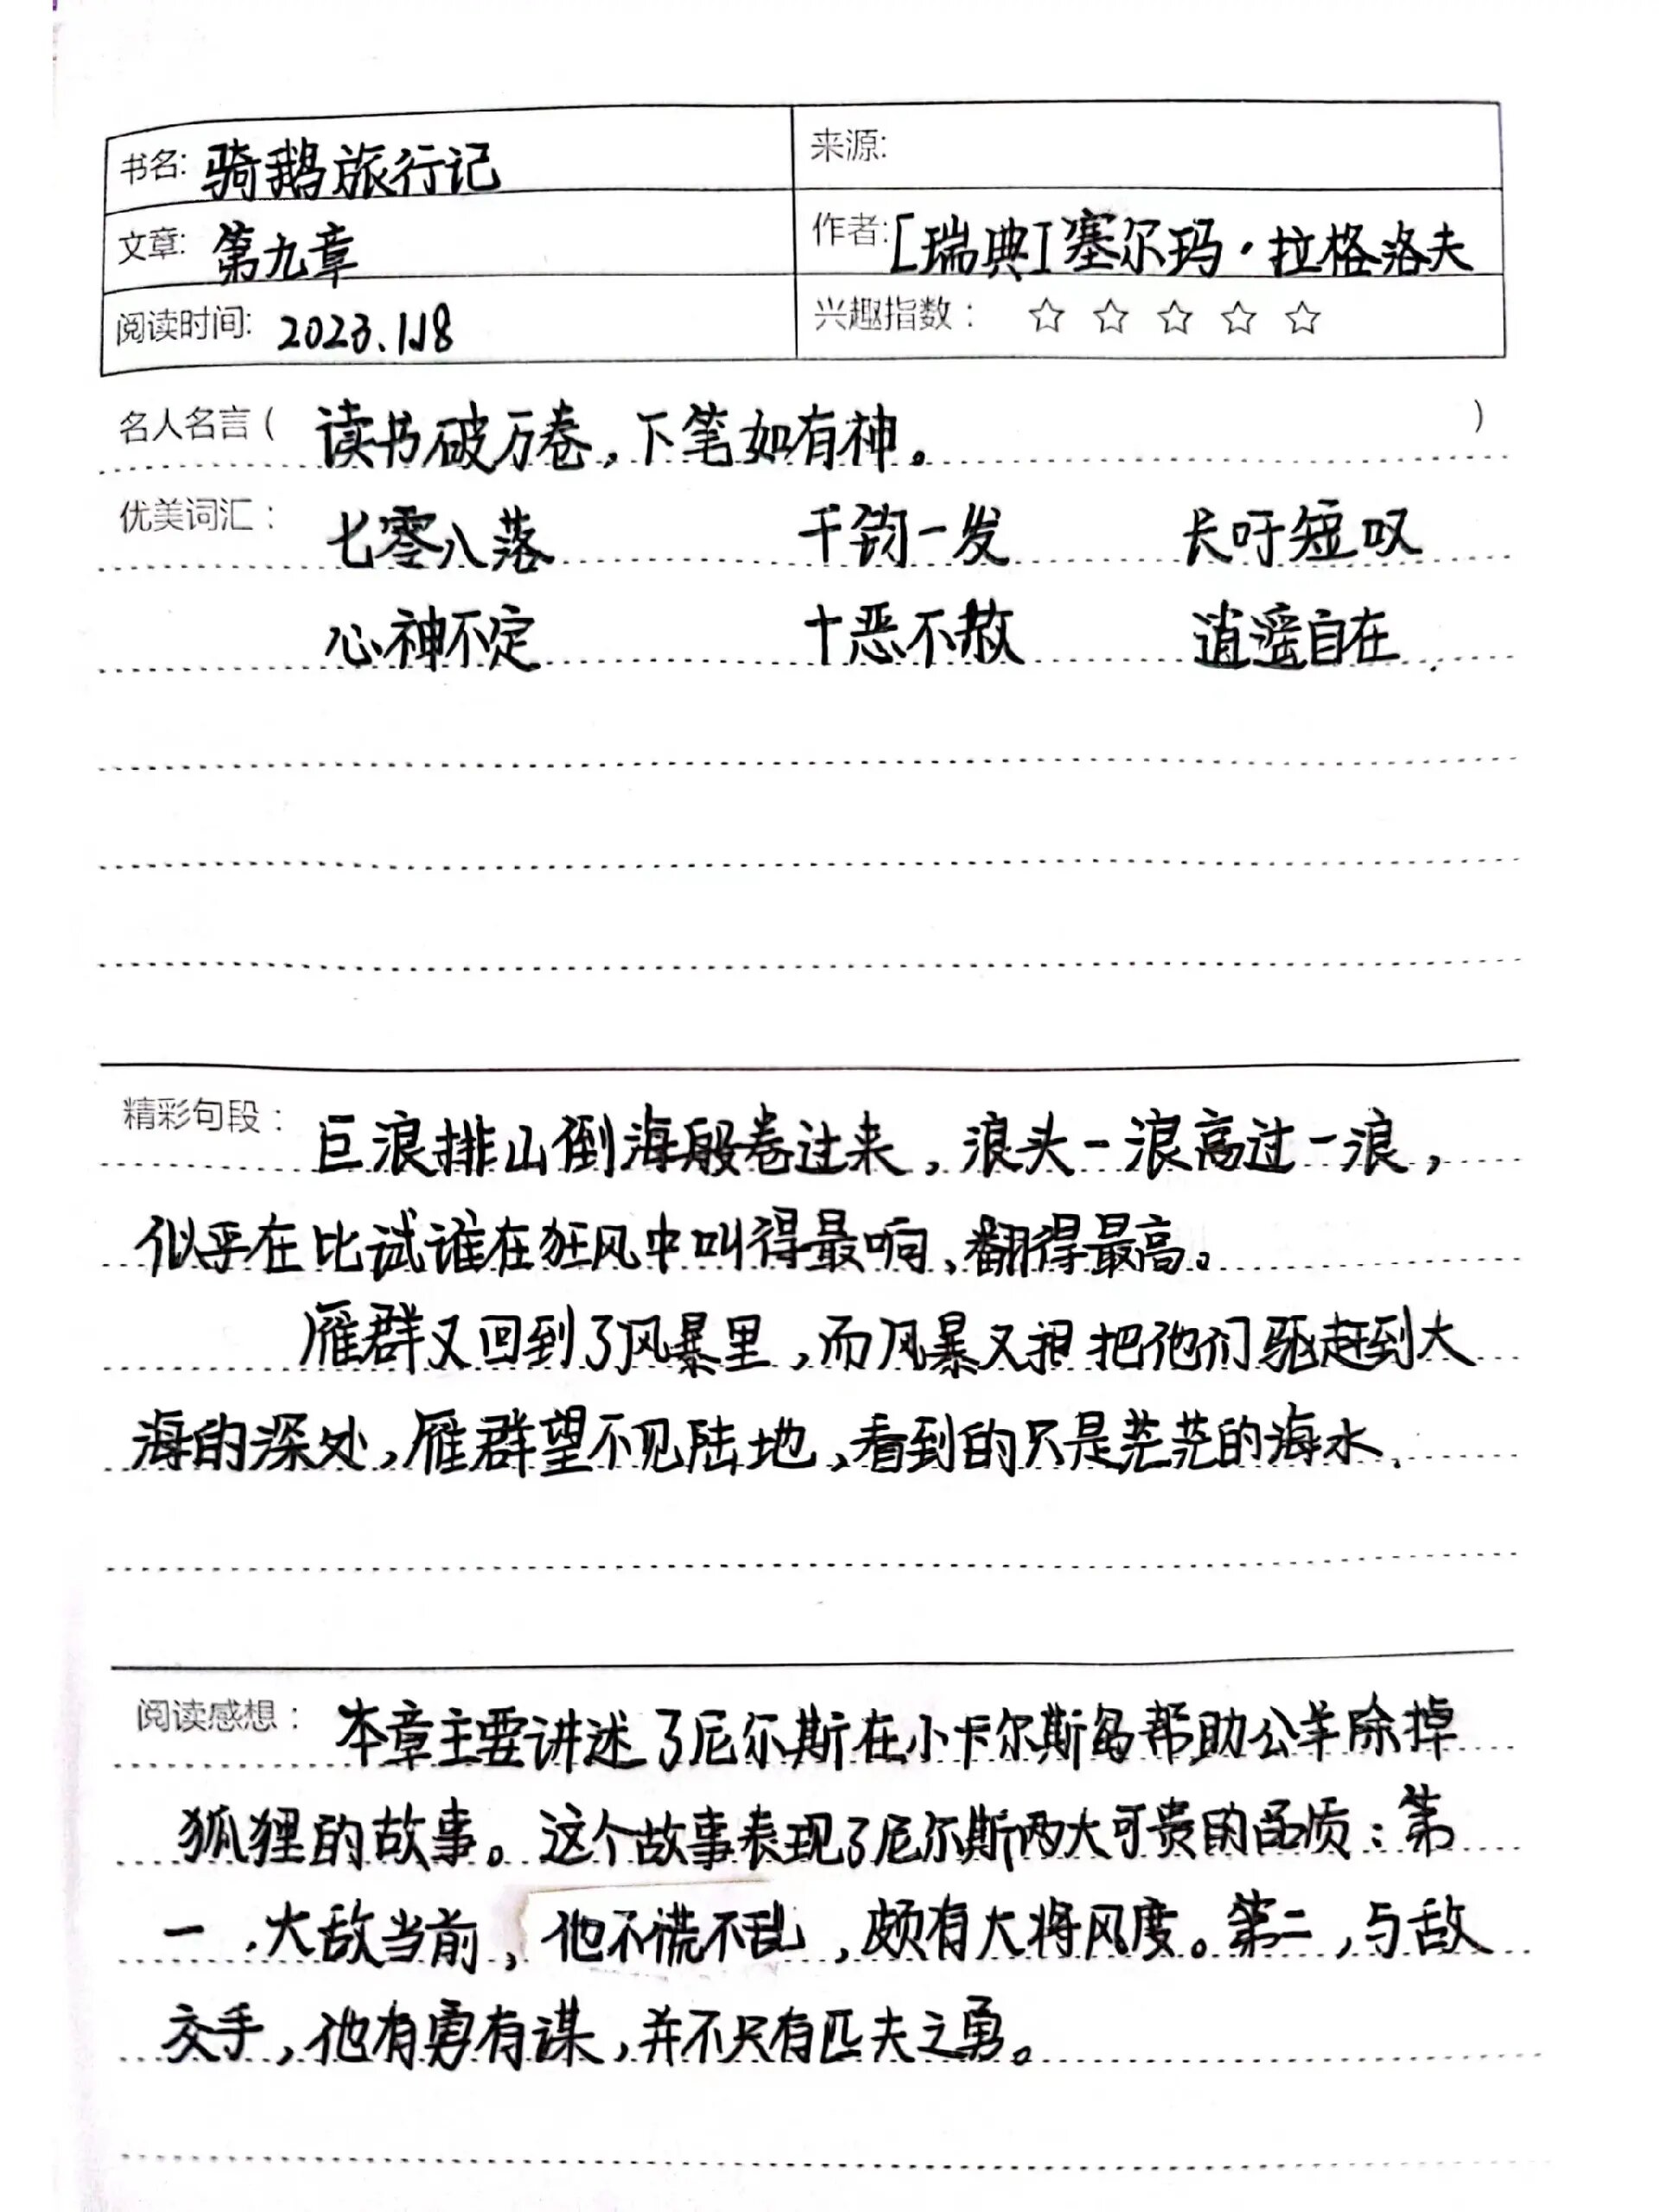 书名: 骑鹅旅行记
来源:
文章: 第九章
作者: [瑞典]塞尔玛·拉格洛夫
阅读时间: 2023.1.18
兴趣指数： ☆ ☆ ☆ ☆ ☆
名人名言( 读书破万卷，下笔如有神。 )
优美词汇： 七零八落 千钧一发 长吁短叹
心神不定 十恶不赦 逍遥自在
精彩句段： 巨浪排山倒海般卷过来，浪头一浪高过一浪，
似乎在比试谁在狂风中叫得最响、翻得最高。
雁群又回到了风暴里，而风暴又把他们驱赶到大
海的深处，雁群望不见陆地，看到的只是茫茫的海水.
阅读感想： 本章主要讲述了尼尔斯在小卡尔斯岛帮助公羊除掉
狐狸的故事。这个故事表现了尼尔斯两大可贵的品质：第
一，大敌当前，他不慌不乱，颇有大将风度。第二，与敌
交手，他有勇有谋，并不只有匹夫之勇。